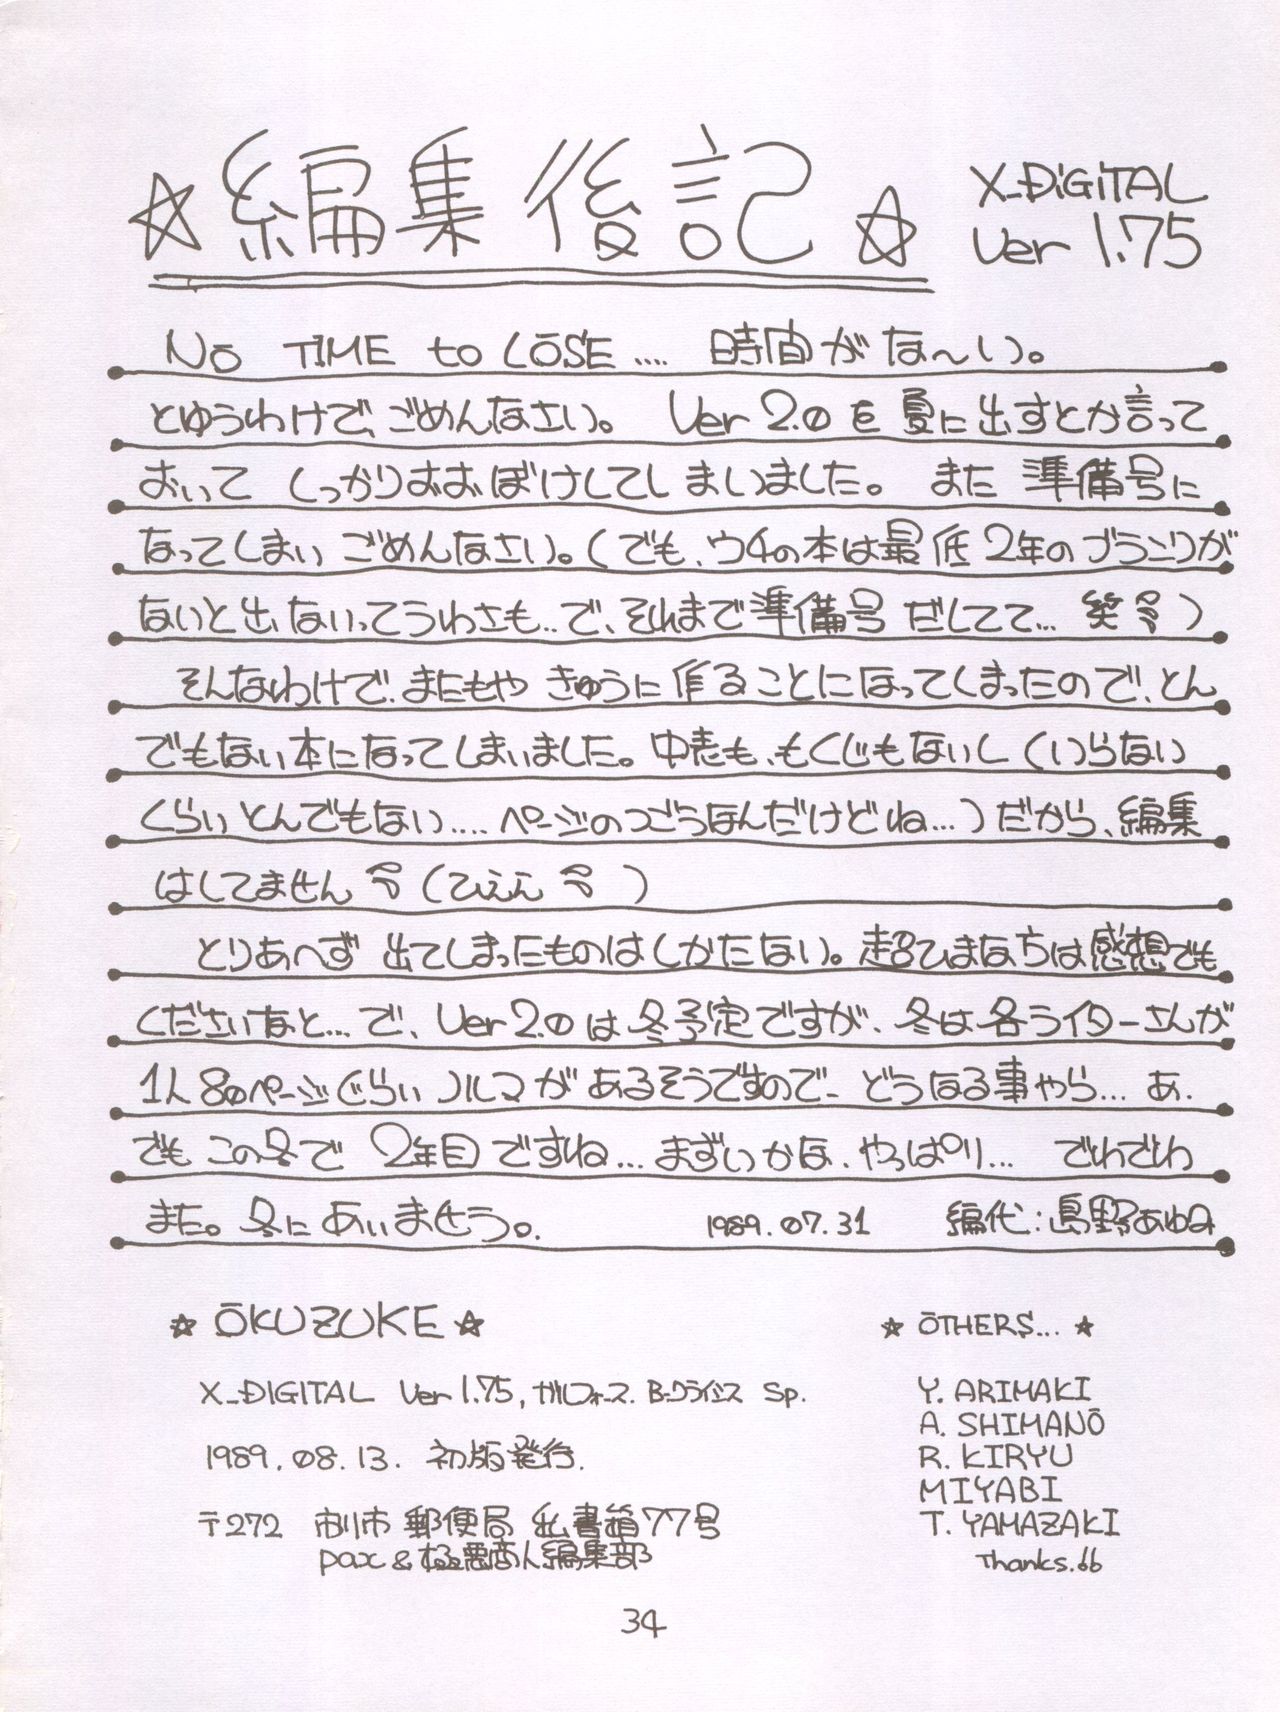 ☆編集後記☆
X_DiGiTAL
Ver 1.75
NO TIME to LOSE.... 時間がな〜い。
とゆうわけで、ごめんなさい。 Ver 2.0を夏に出すとか言って
おいて しっかりおおぼけしてしまいました。 また 準備号に
なってしまい ごめんなさい。(でも、ウチの本は最低2年のブランクが
ないと出ないってうわさも..で、それまで準備号 だしてて... 笑)
そんなわけで、またもや きゅうに作ることになってしまったので、とん
でもない本になってしまいました。中表も、もくじもないし(いらない
くらいとんでもない....ページのつごうなんだけどね...)だから、編集
はしてません(ひえん)
とりあへず 出てしまったものはしかたない。超ひまなら は感想でも
くださいなと...で、Ver 2.0は冬予定ですが、冬は各ライターさんが
1人80ページぐらいノルマがあるそうですので、どうなる事やら... あ.
でも この冬で 2年目ですね... まずいかな、やっぱり... でわでわ
また。冬にあいませう。 1989.07.31 編代:島野あゆみ
☆ OKUZUKE ☆
X_DIGITAL Ver 1.75, ガルフォース. B-クライシス Sp.
1989.08.13. 初版発行.
〒272 市川市 郵便局 私書箱77号
pax & 極悪商人編集部
☆ OTHERS... ☆
Y. ARIMAKI
A. SHIMANO
R. KIRYU
MIYABI
T. YAMAZAKI
Thanks.
34